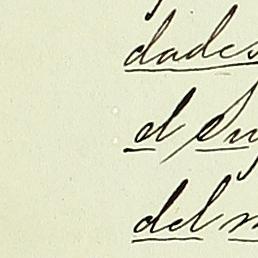 dades
el Su
del m